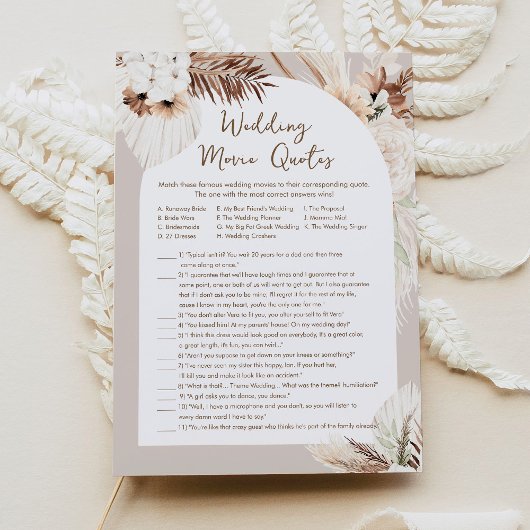 Wedding
Movie Quotes
Match these famous wedding movies to their corresponding quote.
The one with the most correct answers wins!
A. Runaway Bride
B. Bride Wars
C. Bridesmaids
D. 27 Dresses
E. My Best Friend's Wedding
F. The Wedding Planner
G. My Big Fat Greek Wedding
H. Wedding Crashers
I. The Proposal
J. Mamma Mia!
K. The Wedding Singer
1) "Typical isn't it? You wait 20 years for a dad and then three
come along at once."
2) "I guarantee that we'll have tough times and I guarantee that at
some point, one or both of us will want to get out. But I also guarantee
that if I don't ask you to be mine, I'll regret it for the rest of my life,
cause I know in my heart, you're the only one for me."
3) "You don't alter Vera to fit you, you alter yourself to fit Vera"
4) "You kissed him! At my parents' house! On my wedding day!"
5) "I think this dress would look good on everybody, it's a great color,
a great length, it's fun, you can twirl..."
6) "Aren't you suppose to get down on your knees or something?"
7) "I've never seen my sister this happy, Ian. If you hurt her,
I'll kill you and make it look like an accident."
8) "What is that?... Theme Wedding... What was the theme? humiliation?"
9) "A girl asks you to dance, you dance."
10) "Well, I have a microphone and you don't, so you will listen to
every damn word I have to say."
11) "You're like that crazy guest who thinks he's part of the family already."